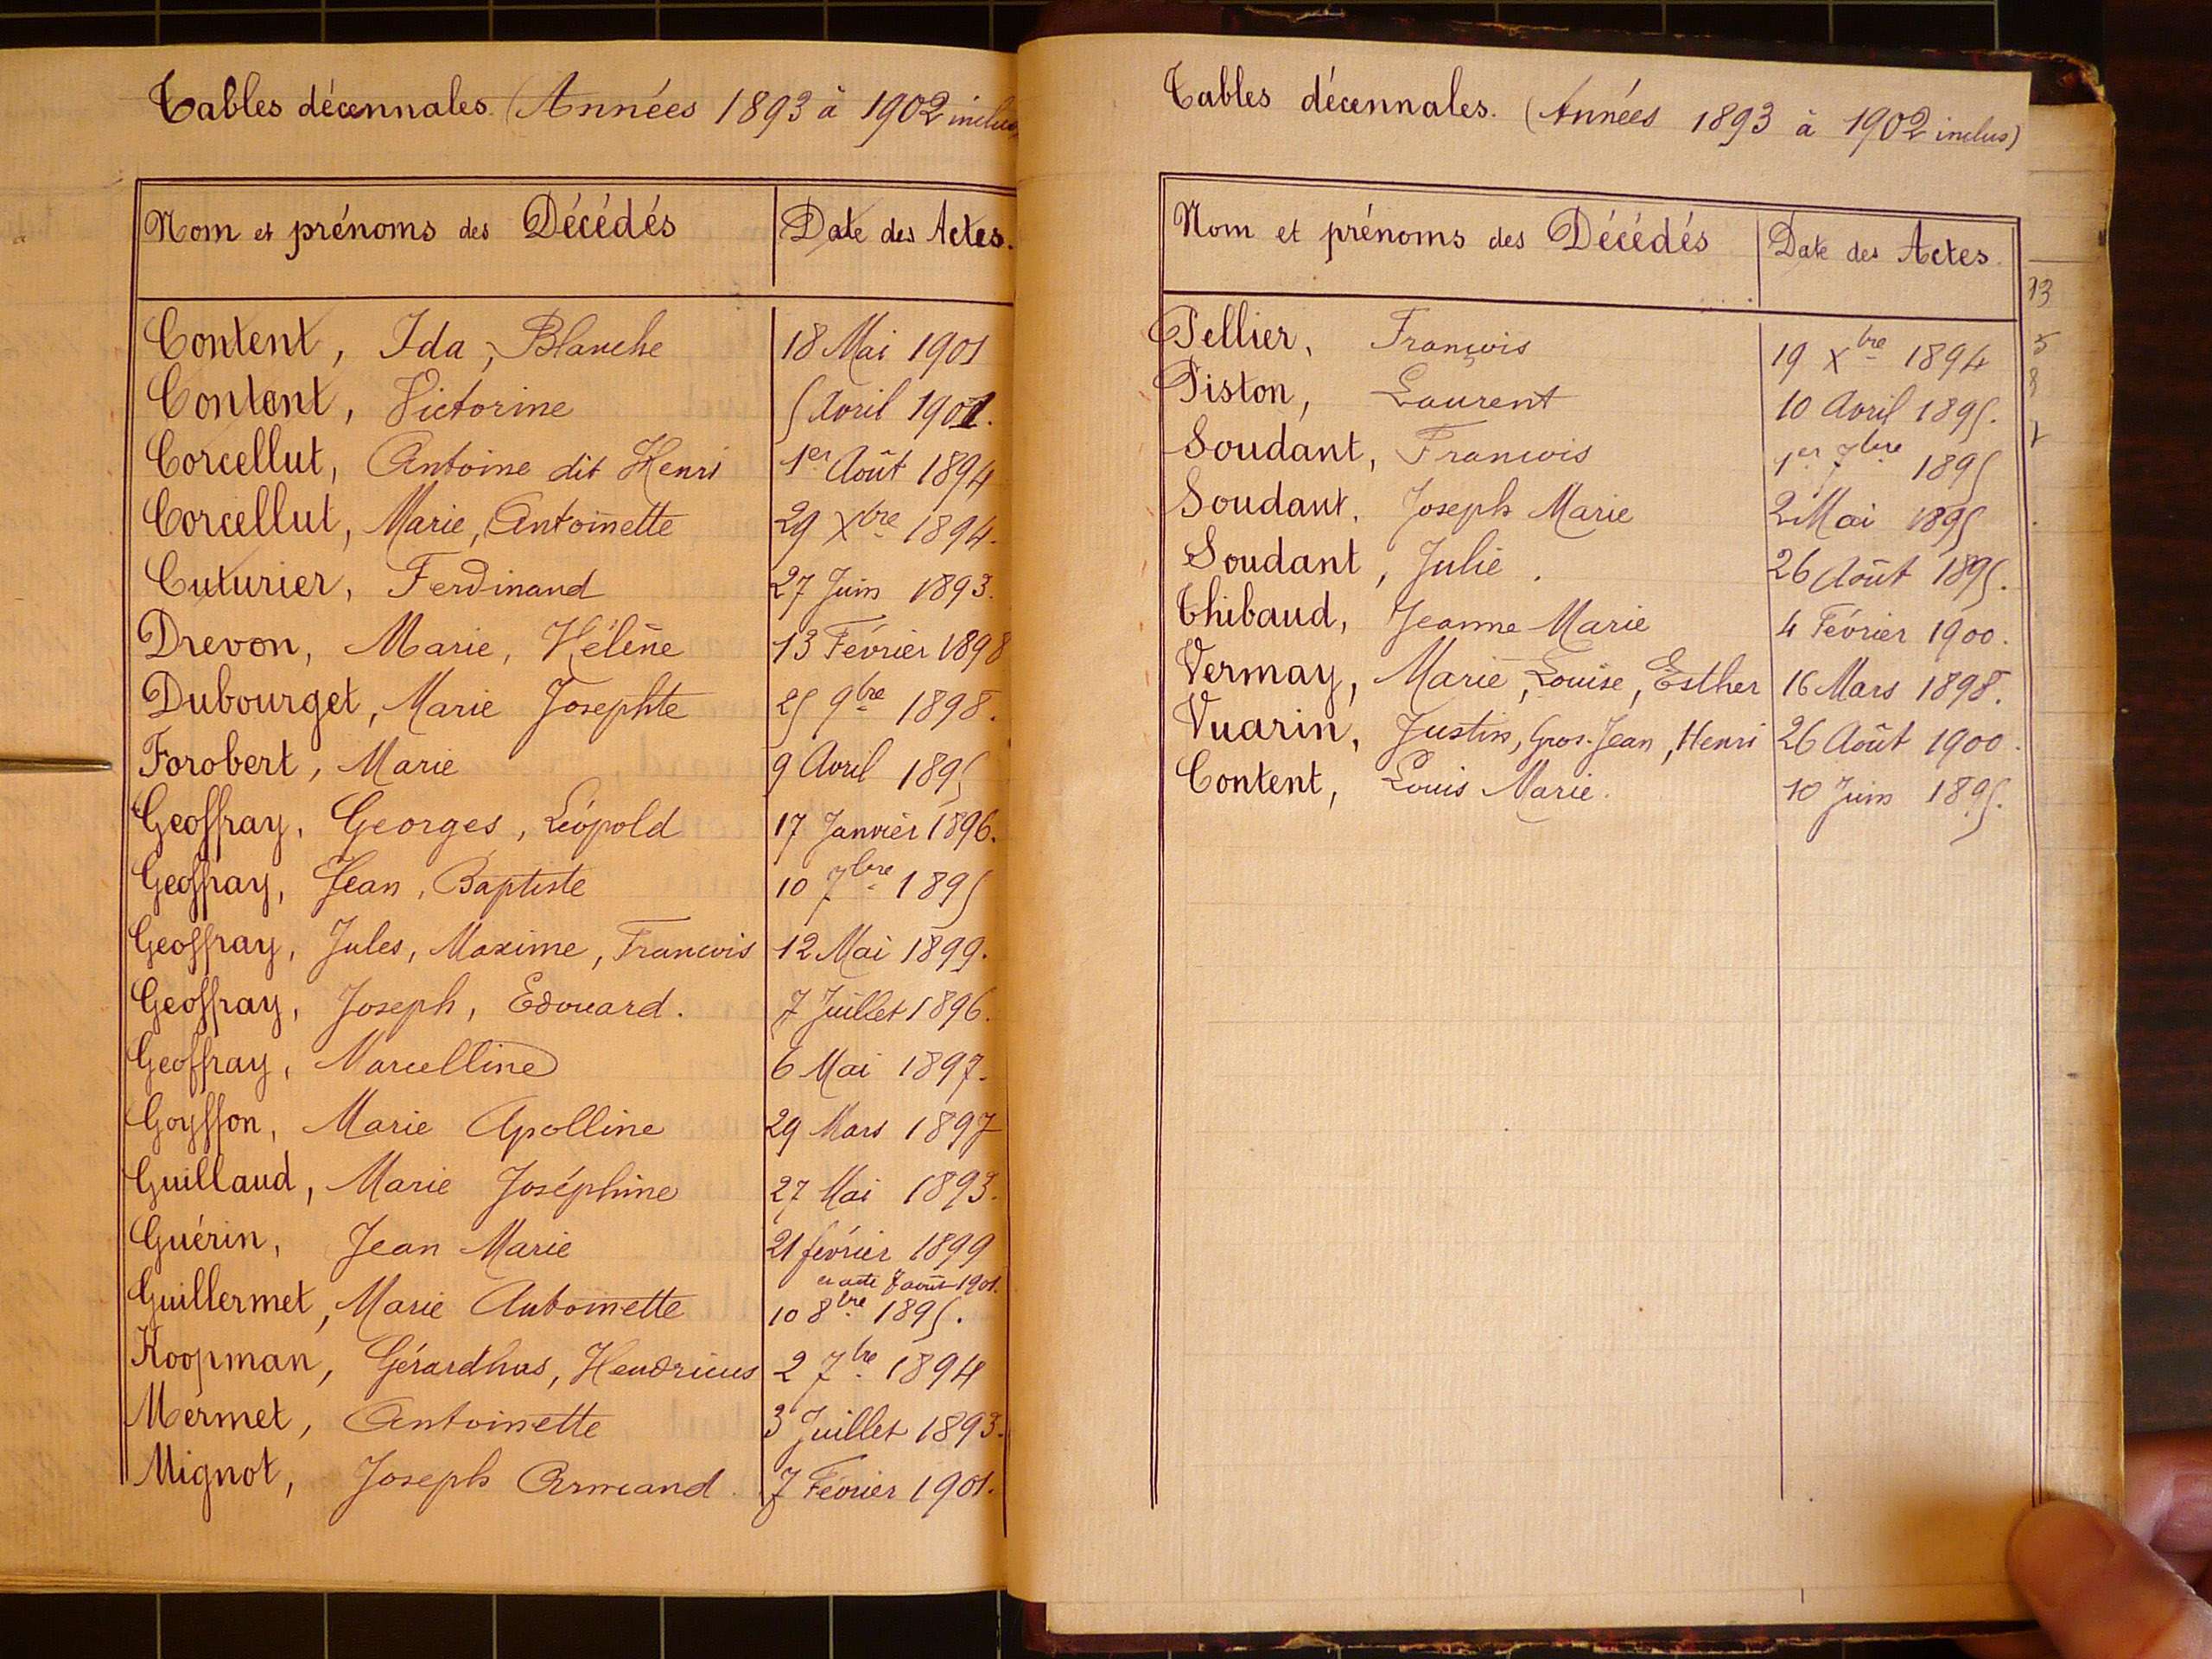 Tables décennales. (Années 1893 à 1902 inclus
Nom et prénoms des Décédés Date des Actes.
Content, Ida, Blanche 18 Mai 1901
Content, Victorine 5 Avril 1901.
Corcellut, Antoine dit Henri 1er Août 1894
Corcellut, Marie, Antoinette 29 Xbre 1894.
Cuturier, Ferdinand 27 Juin 1893.
Drevon, Marie, Hélène 13 Février 1898
Dubourget, Marie Josephte 25 9bre 1898.
Forobert, Marie 9 Avril 1895
Geoffray, Georges, Léopold 17 Janvier 1896.
Geoffray, Jean, Baptiste 10 7bre 1895
Geoffray, Jules, Maxime, Francois 12 Mai 1899.
Geoffray, Joseph, Edouard. 7 Juillet 1896.
Geoffray, Marcelline 6 Mai 1897.
Goyffon, Marie Apolline 29 Mars 1897
Guillaud, Marie Joséphine 27 Mai 1893.
Guérin, Jean Marie 21 février 1899
acte 7 août 1901.
Guillermet, Marie Antoinette 10 8bre 1895.
Koopman, Gérardhus, Hendricus 2 7bre 1894
Mermet, Antoinette 3 Juillet 1893.
Mignot, Joseph Armand. 7 Février 1901.
Tables décennales. (Années 1893 à 1902 inclus)
Nom et prénoms des Décédés Date des Actes.
Pellier, François 19 Xbre 1894
Piston, Laurent 10 Avril 1895.
Soudant, Francois 1er 7bre 1895
Soudant, Joseph Marie 2 Mai 1895
Soudant, Julie. 26 Août 1895.
Thibaud, Jeanne Marie 4 Février 1900.
Vermay, Marie, Louise, Esther 16 Mars 1898.
Vuarin, Justin, Gros-Jean, Henri 26 Août 1900.
Content, Louis Marie. 10 Juin 1895.
13
5
8